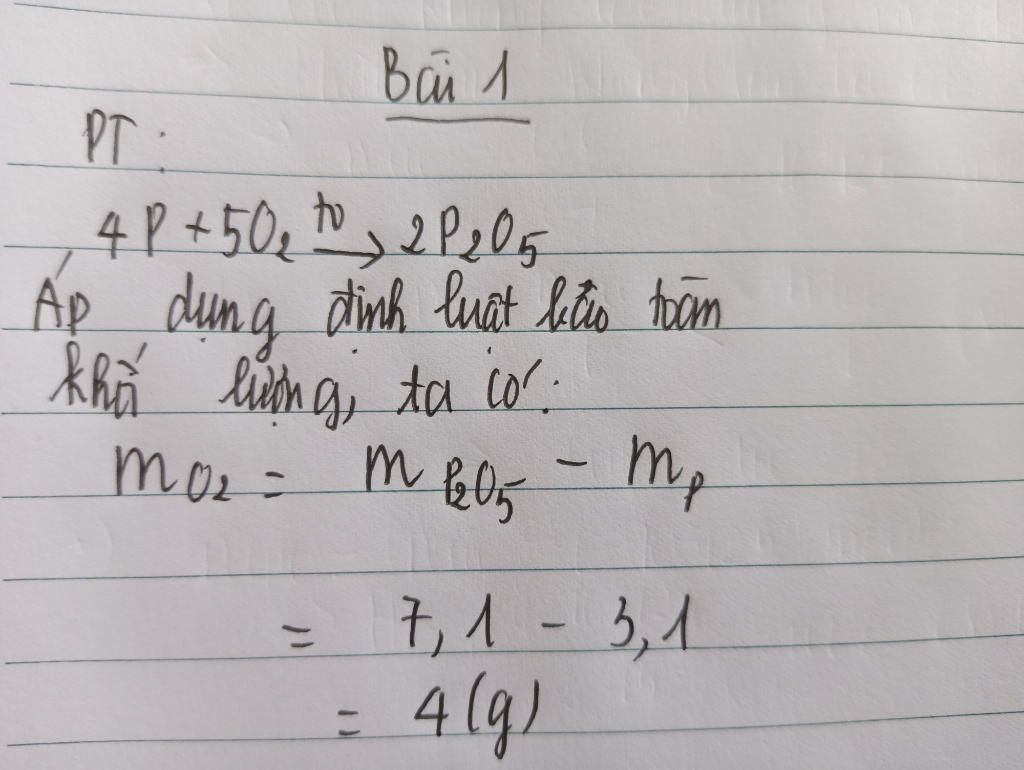 Bài 1
PT:
4P + 5O₂ →(t⁰) 2P₂O₅
Áp dụng định luật bảo toàn
khối lượng, ta có:
mO₂ = mP₂O₅ - mP
= 7,1 - 3,1
= 4(g)